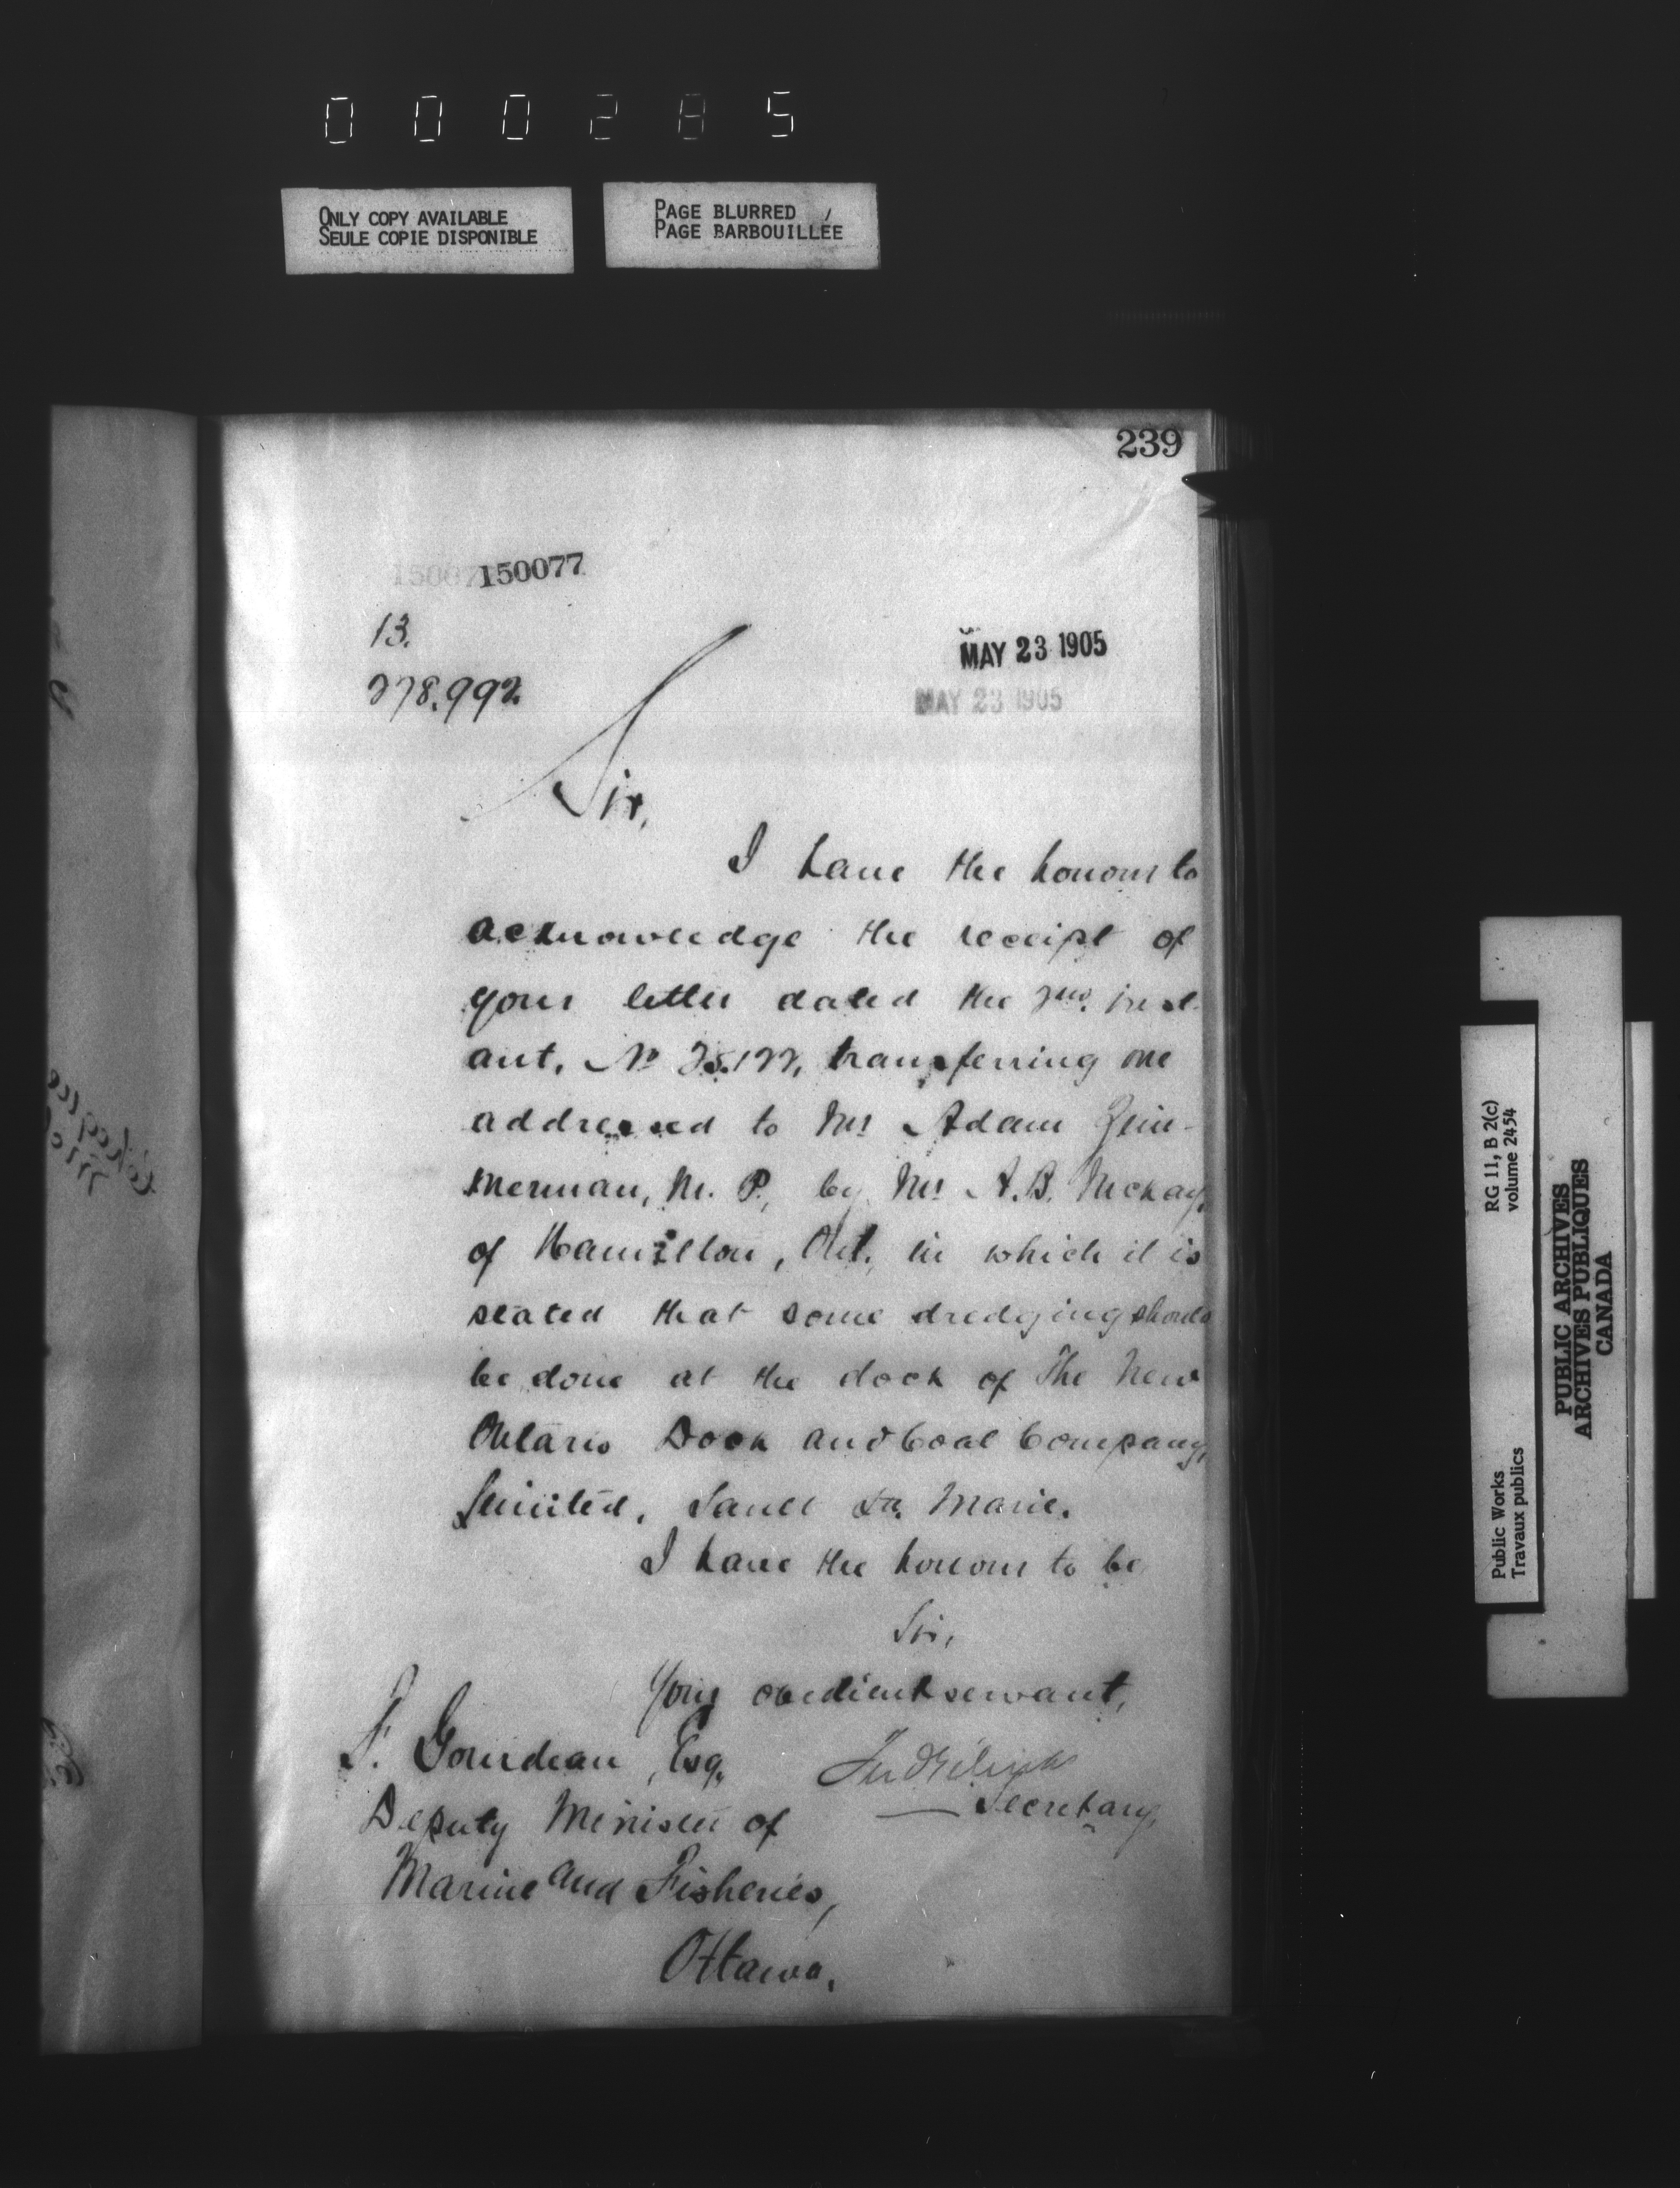 000285
ONLY COPY AVAILABLE
SEULE COPIE DISPONIBLE
PAGE BLURRED
PAGE BARBOUILLÉE
239
150077
13.
278.992.
MAY 23 1905
MAY 23 1905
Sir,
I have the honour to
acknowledge the receipt of
your letter dated the inst-
ant, No transferring one
addressed to Mr Adam Zim-
merman, M. P., by Mr A. B. McKay,
of Hamilton, Ont. in which it is
stated that some dredging should
be done at the dock of The New
Ontario Dock and Coal Company,
Limited, Sault Ste. Marie.
I have the honour to be
Sir,
Your obedient servant,
F. Gourdeau, Esq.
Secretary,
Deputy Minister of
Marine and Fisheries,
Ottawa.
RG 11, B 2(c)
volume 2454
Public Works
Travaux publics
PUBLIC ARCHIVES
ARCHIVES PUBLIQUES
CANADA